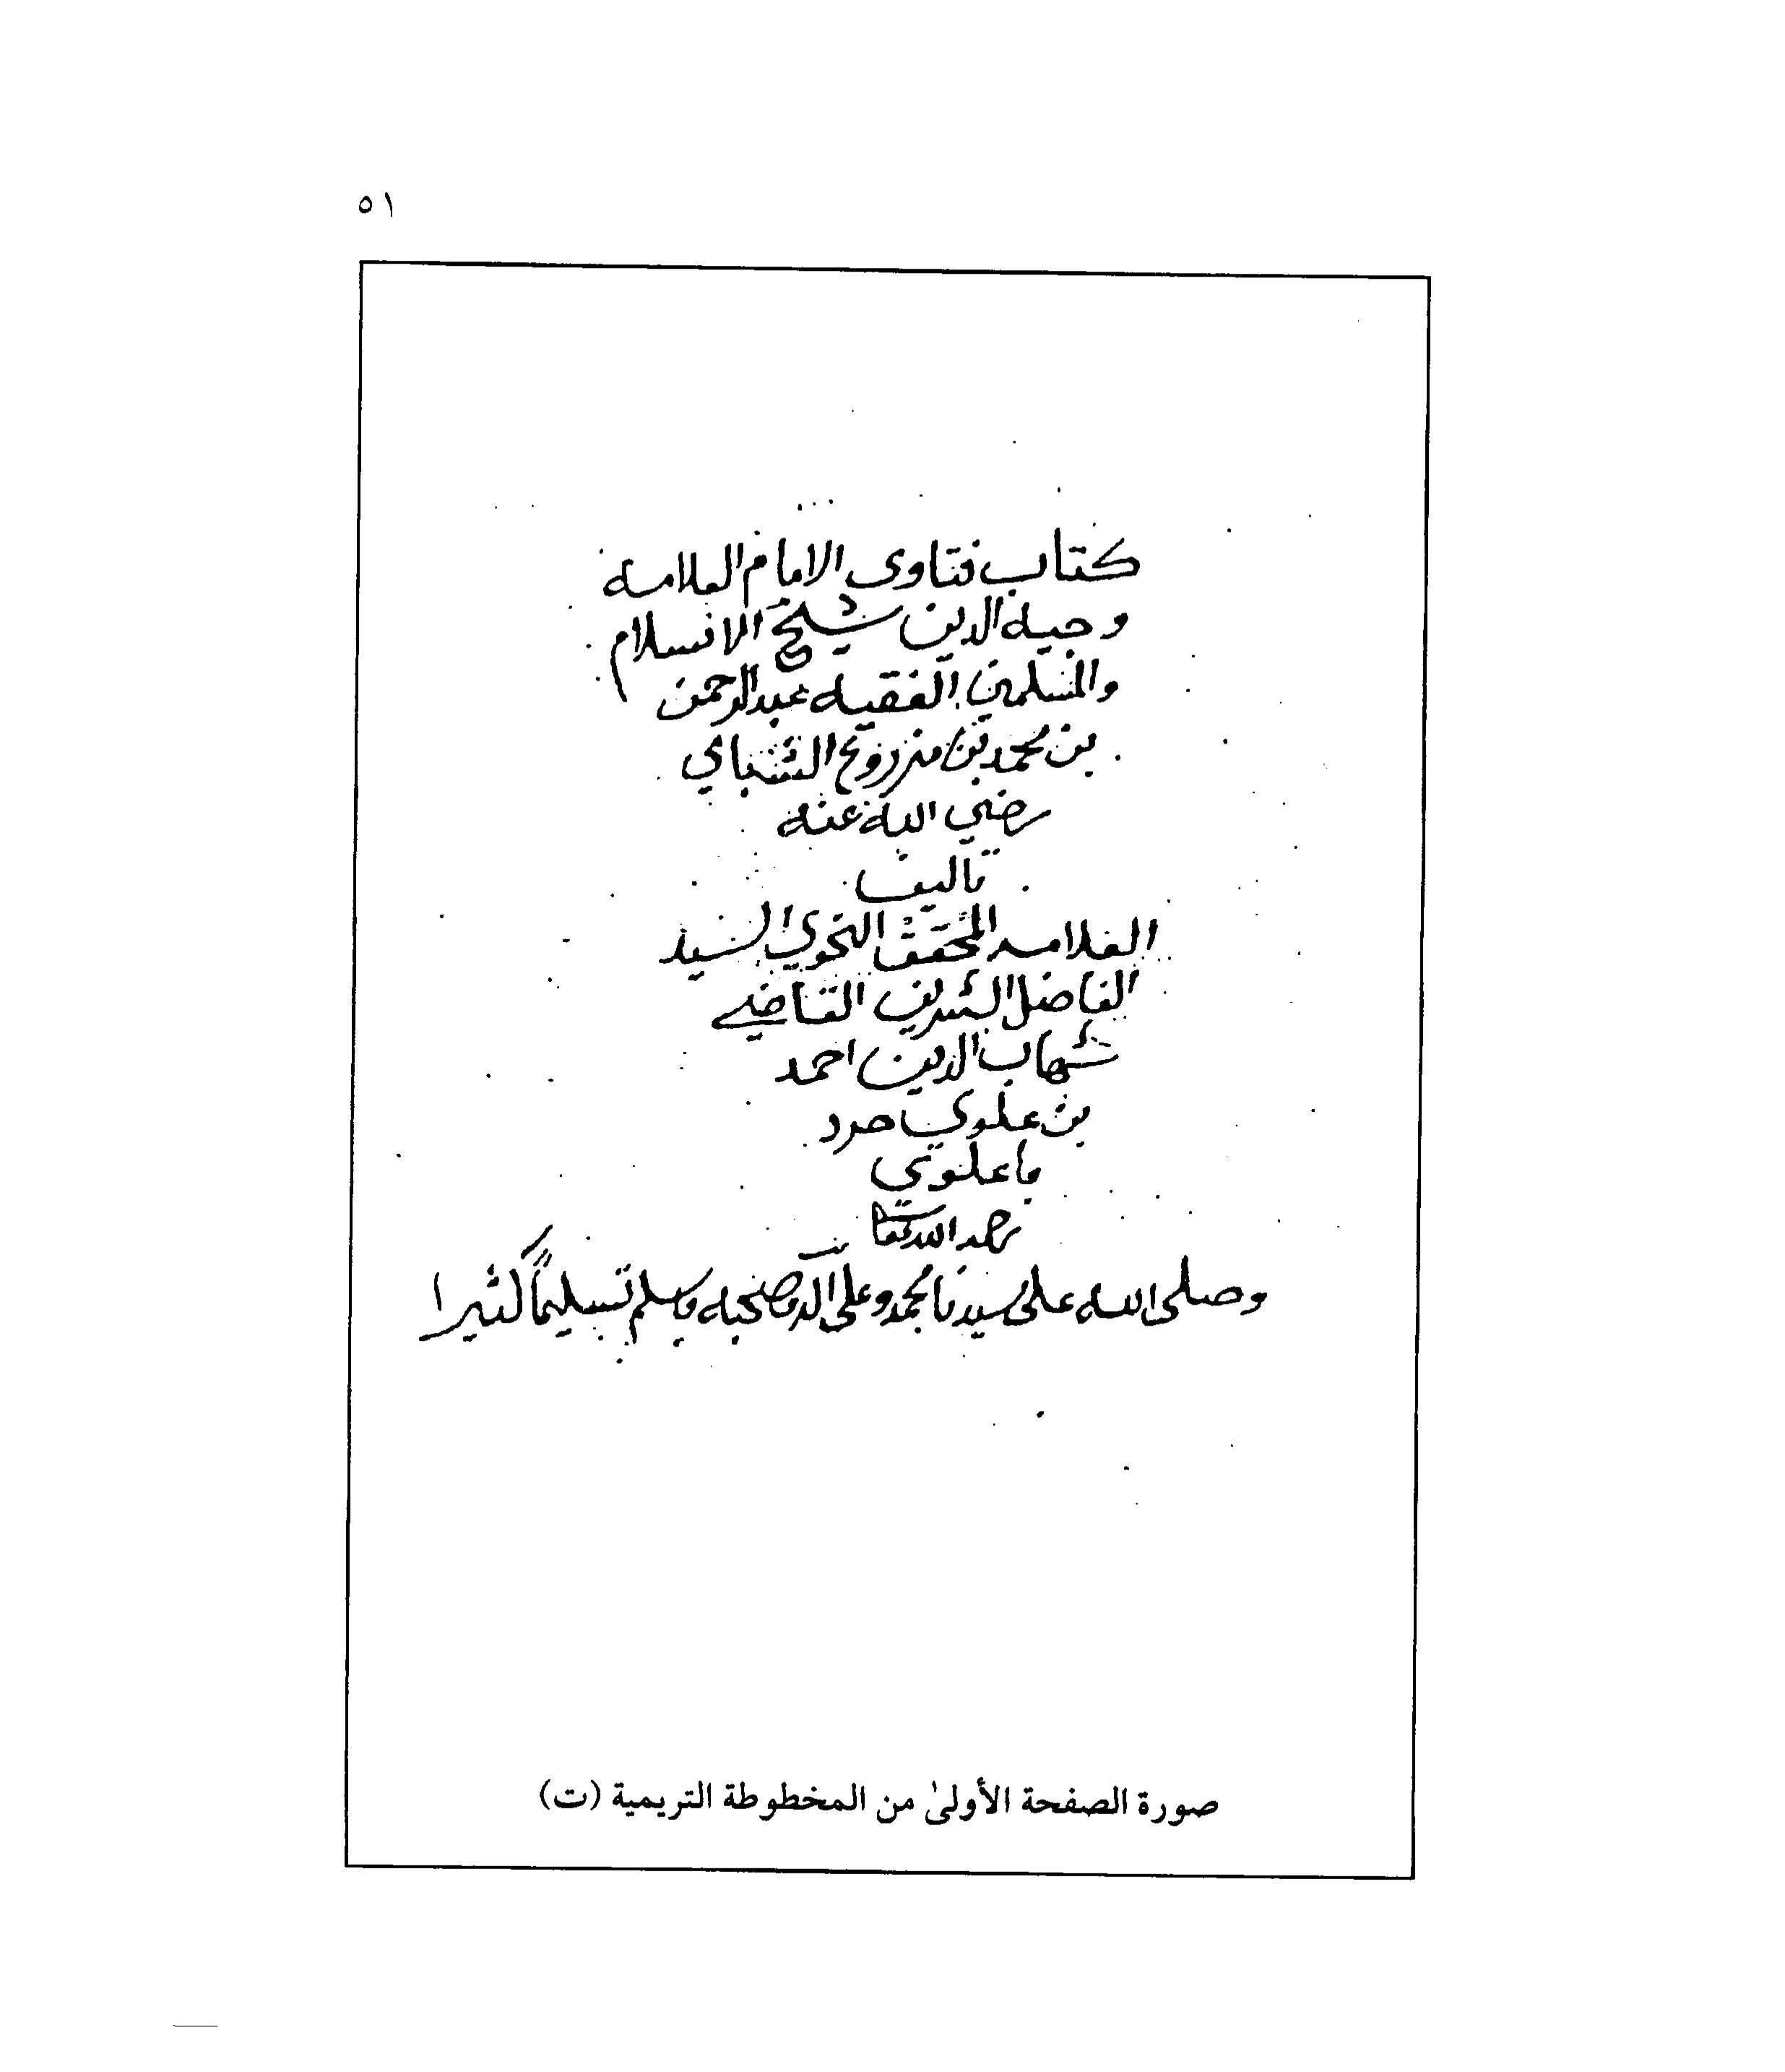 ٥١
كتاب فتاوى الامام العلامه
وجيه الدين شيخ الاسلام
والمسلمين الفقيه عبدالرحمن
بن محمد بن مزروع الشبامي
رضي الله عنه
تاليف
العلامه المحقق النحوي السيد
الفاضل الشريف القاضي
شهاب الدين احمد
بن علوي خرد
باعلوي
رحمه الله تعالى
وصلى الله على سيدنا محمد وعلى اله وصحبه وسلم تسليماً كثيرا
صورة الصفحة الأولىٰ من المخطوطة التريمية (ت)